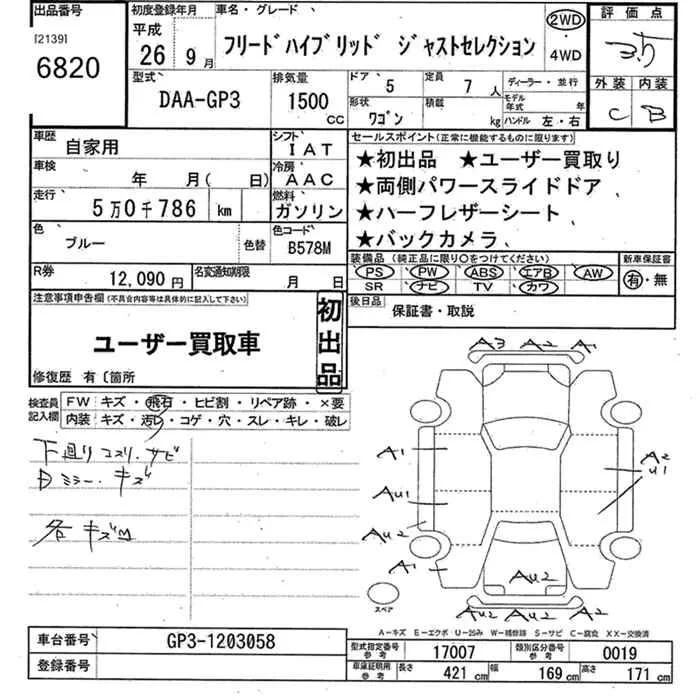 出品番号
[2139]
6820
初度登録年月
平成
26年 9月
車名・グレード
フリードハイブリッド ジャストセレクション
2WD
・
4WD
評価点
3.5
外装 内装
C B
型式
DAA-GP3
排気量
1500 cc
ドア 5
定員 7人
ディーラー・並行
形状 ワゴン
積載 kg
モデル年式 年
ハンドル 左・右
車歴 自家用
シフト IAT
車検 年 月( 日)
冷房 AAC
走行 5万0千786 km
燃料 ガソリン
色 ブルー 色替
色コード B578M
R券 12,090円
名変通知期限 月 日
セールスポイント(正常に機能するものに限ります)
★初出品 ★ユーザー買取り
★両側パワースライドドア
★ハーフレザーシート
★バックカメラ
装備品(純正品に限り○をつけてください)
新車保証書
PS PW ABS エアB AW
SR ナビ TV カワ
有・無
後日品 保証書・取説
注意事項申告欄(不具合内容等は具体的に記入して下さい)
ユーザー買取車
修復歴 有〔箇所
初出品
検査員記入欄
FW キズ・飛石・ヒビ割・リペア跡・×要
内装 キズ・汚レ・コゲ・穴・スレ・キレ・破レ
下廻りコスリ・サビ
Dミラー・キズ
各キズM
A3 A2 A1
A1
A2
U1
AU1
AU2
A1
AU2
AU2 AU2 A2
スペア
A-キズ E-エクボ U-凹み W-補修跡 S-サビ C-腐食 XX-交換済
車台番号 GP3-1203058
登録番号
型式指定番号 参考 17007
類別区分番号 参考 0019
車庫証明用 参考 長さ 421cm 幅 169cm 高さ 171cm